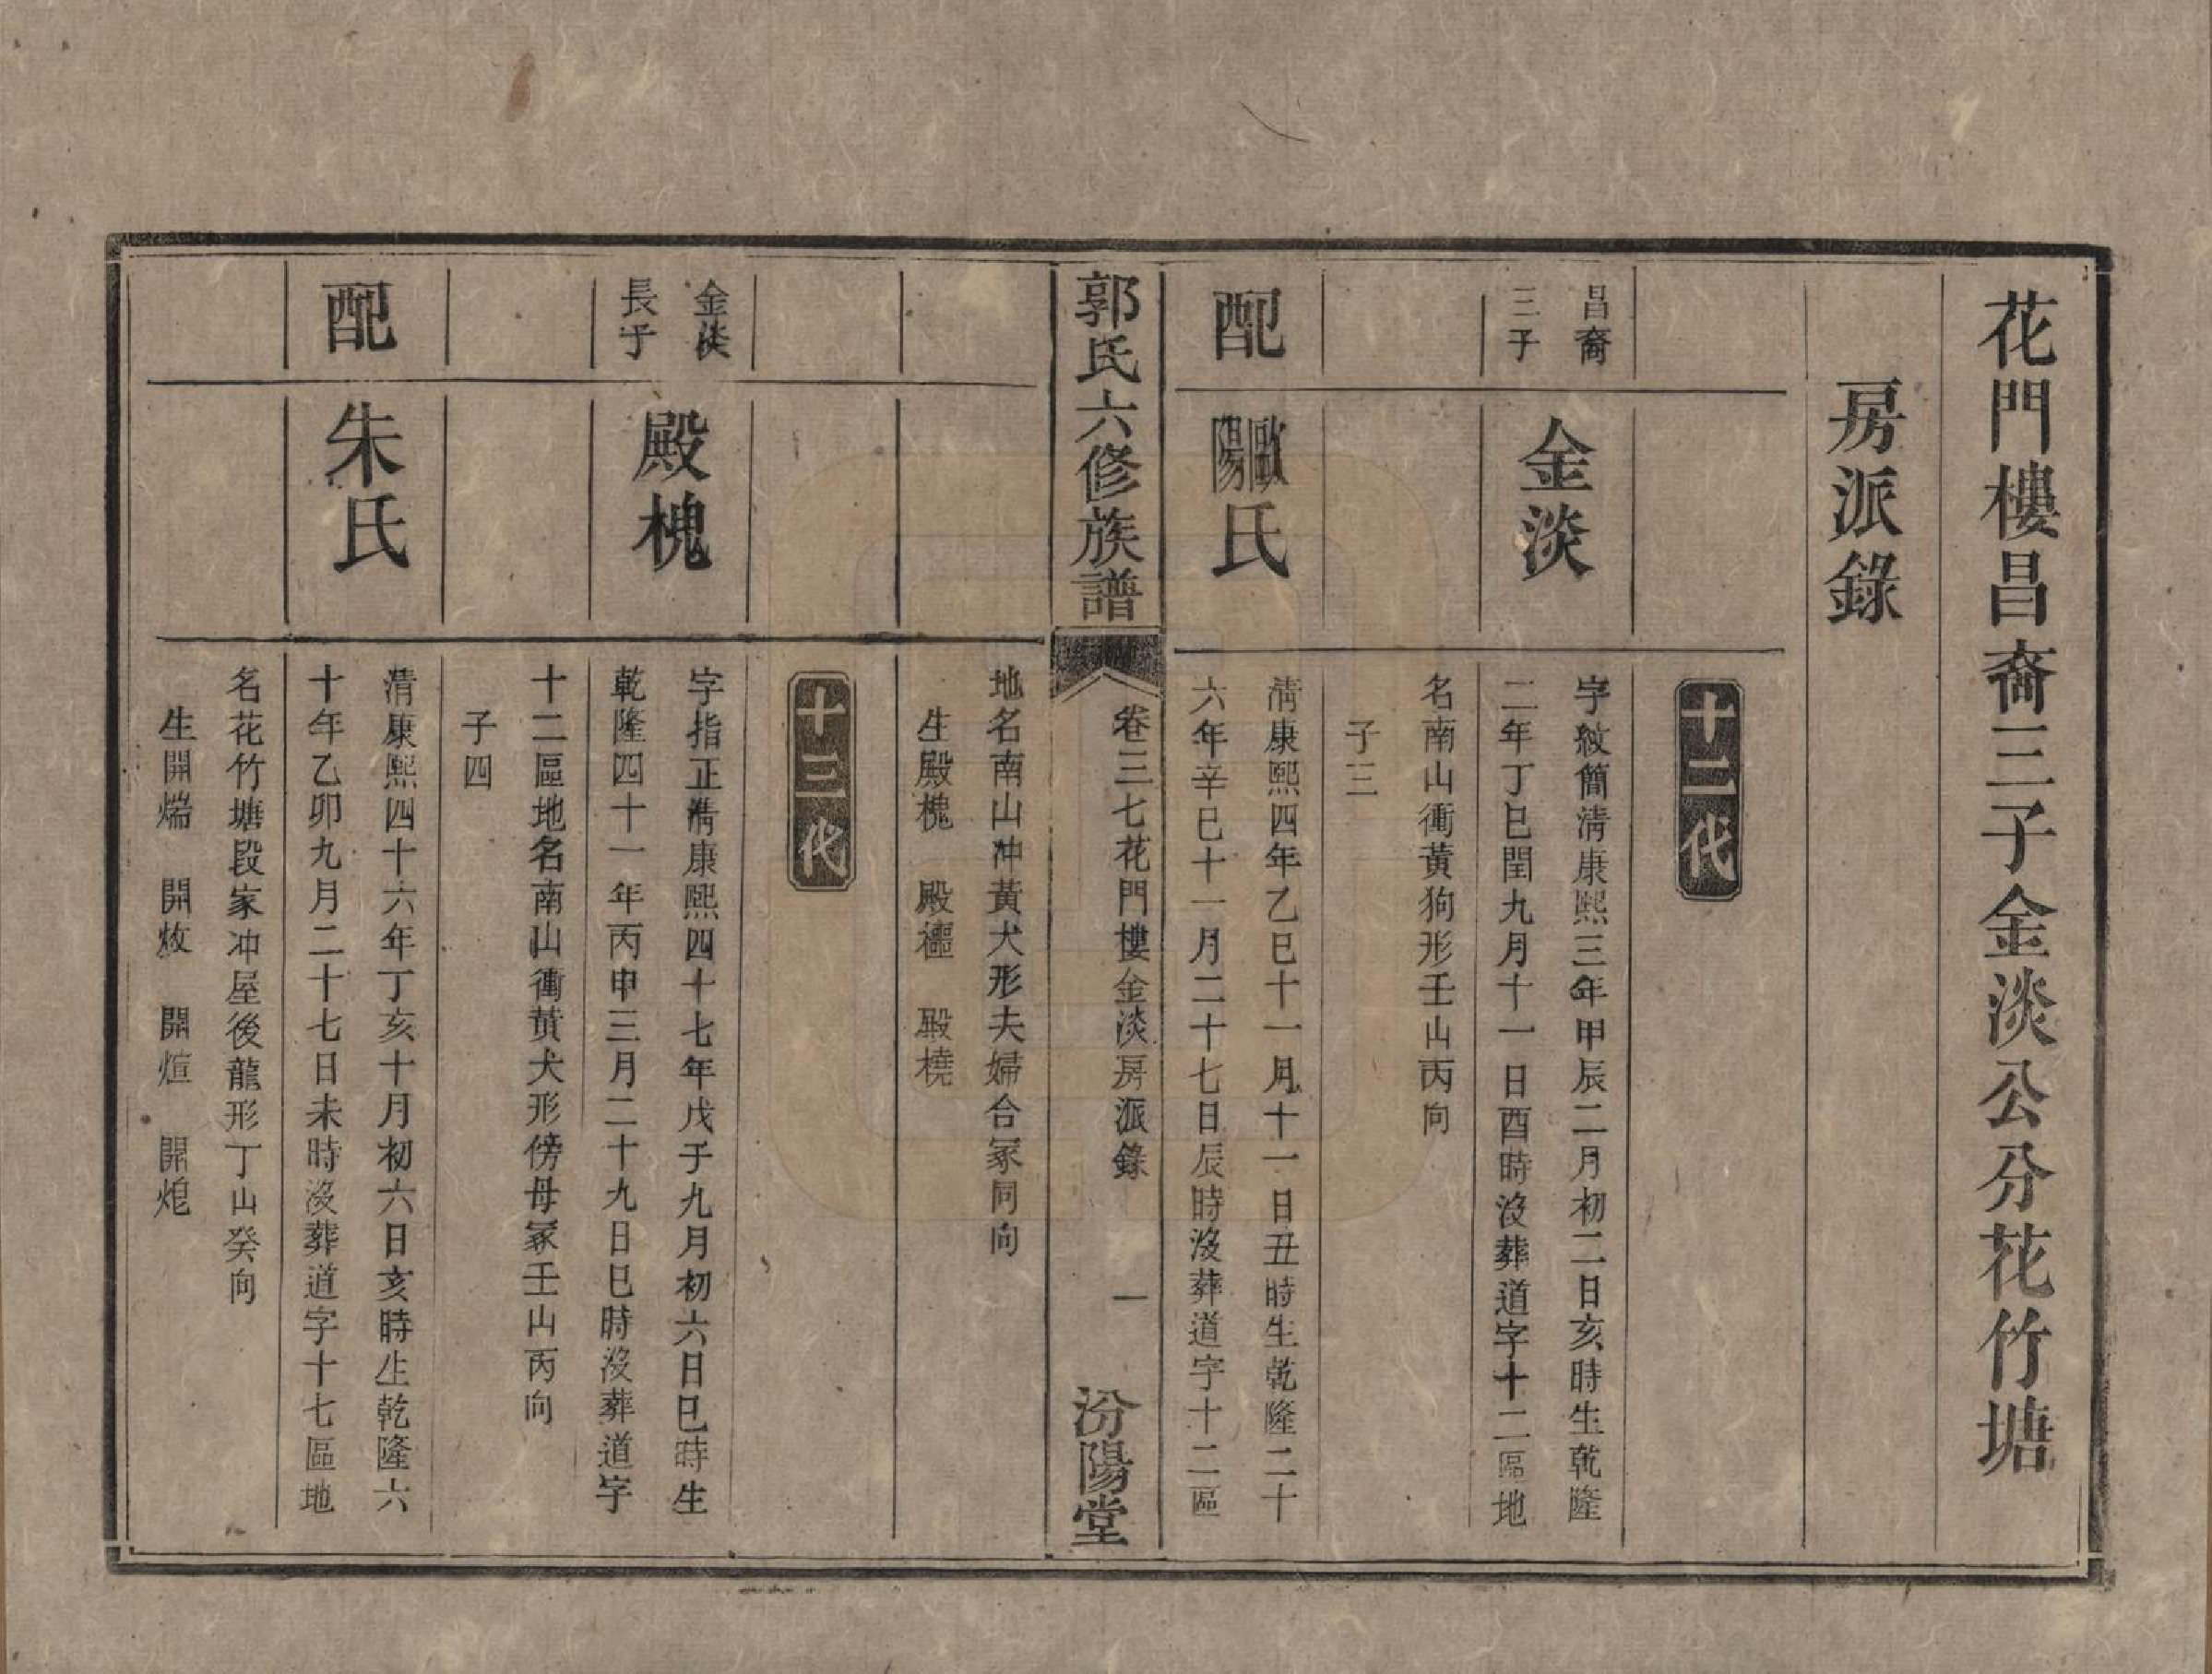 花門樓昌裔三子金淡公分花竹塘
房派錄
十二代
昌裔
三子
金淡
字紋簡清康熙三年甲辰二月初二日亥時生乾隆
二年丁巳閏九月十一日酉時沒葬道字十二區地
名南山衝黃狗形壬山丙向
子三
配
歐陽氏
清康熙四年乙巳十一月十一日丑時生乾隆二十
六年辛巳十一月二十七日辰時沒葬道字十二區
郭氏六修族譜
卷三七花門樓金淡房派錄
一
汾陽堂
地名南山冲黃犬形夫婦合冢同向
生殿槐 殿 殿橈
十三代
金淡
長子
殿槐
字指正清康熙四十七年戊子九月初六日巳時生
乾隆四十一年丙申三月二十九日巳時沒葬道字
十二區地名南山衝黃犬形傍母冢壬山丙向
子四
配
朱氏
清康熙四十六年丁亥十月初六日亥時生乾隆六
十年乙卯九月二十七日未時沒葬道字十七區地
名花竹塘段家冲屋後龍形丁山癸向
生開煓 開 開煊 開炮